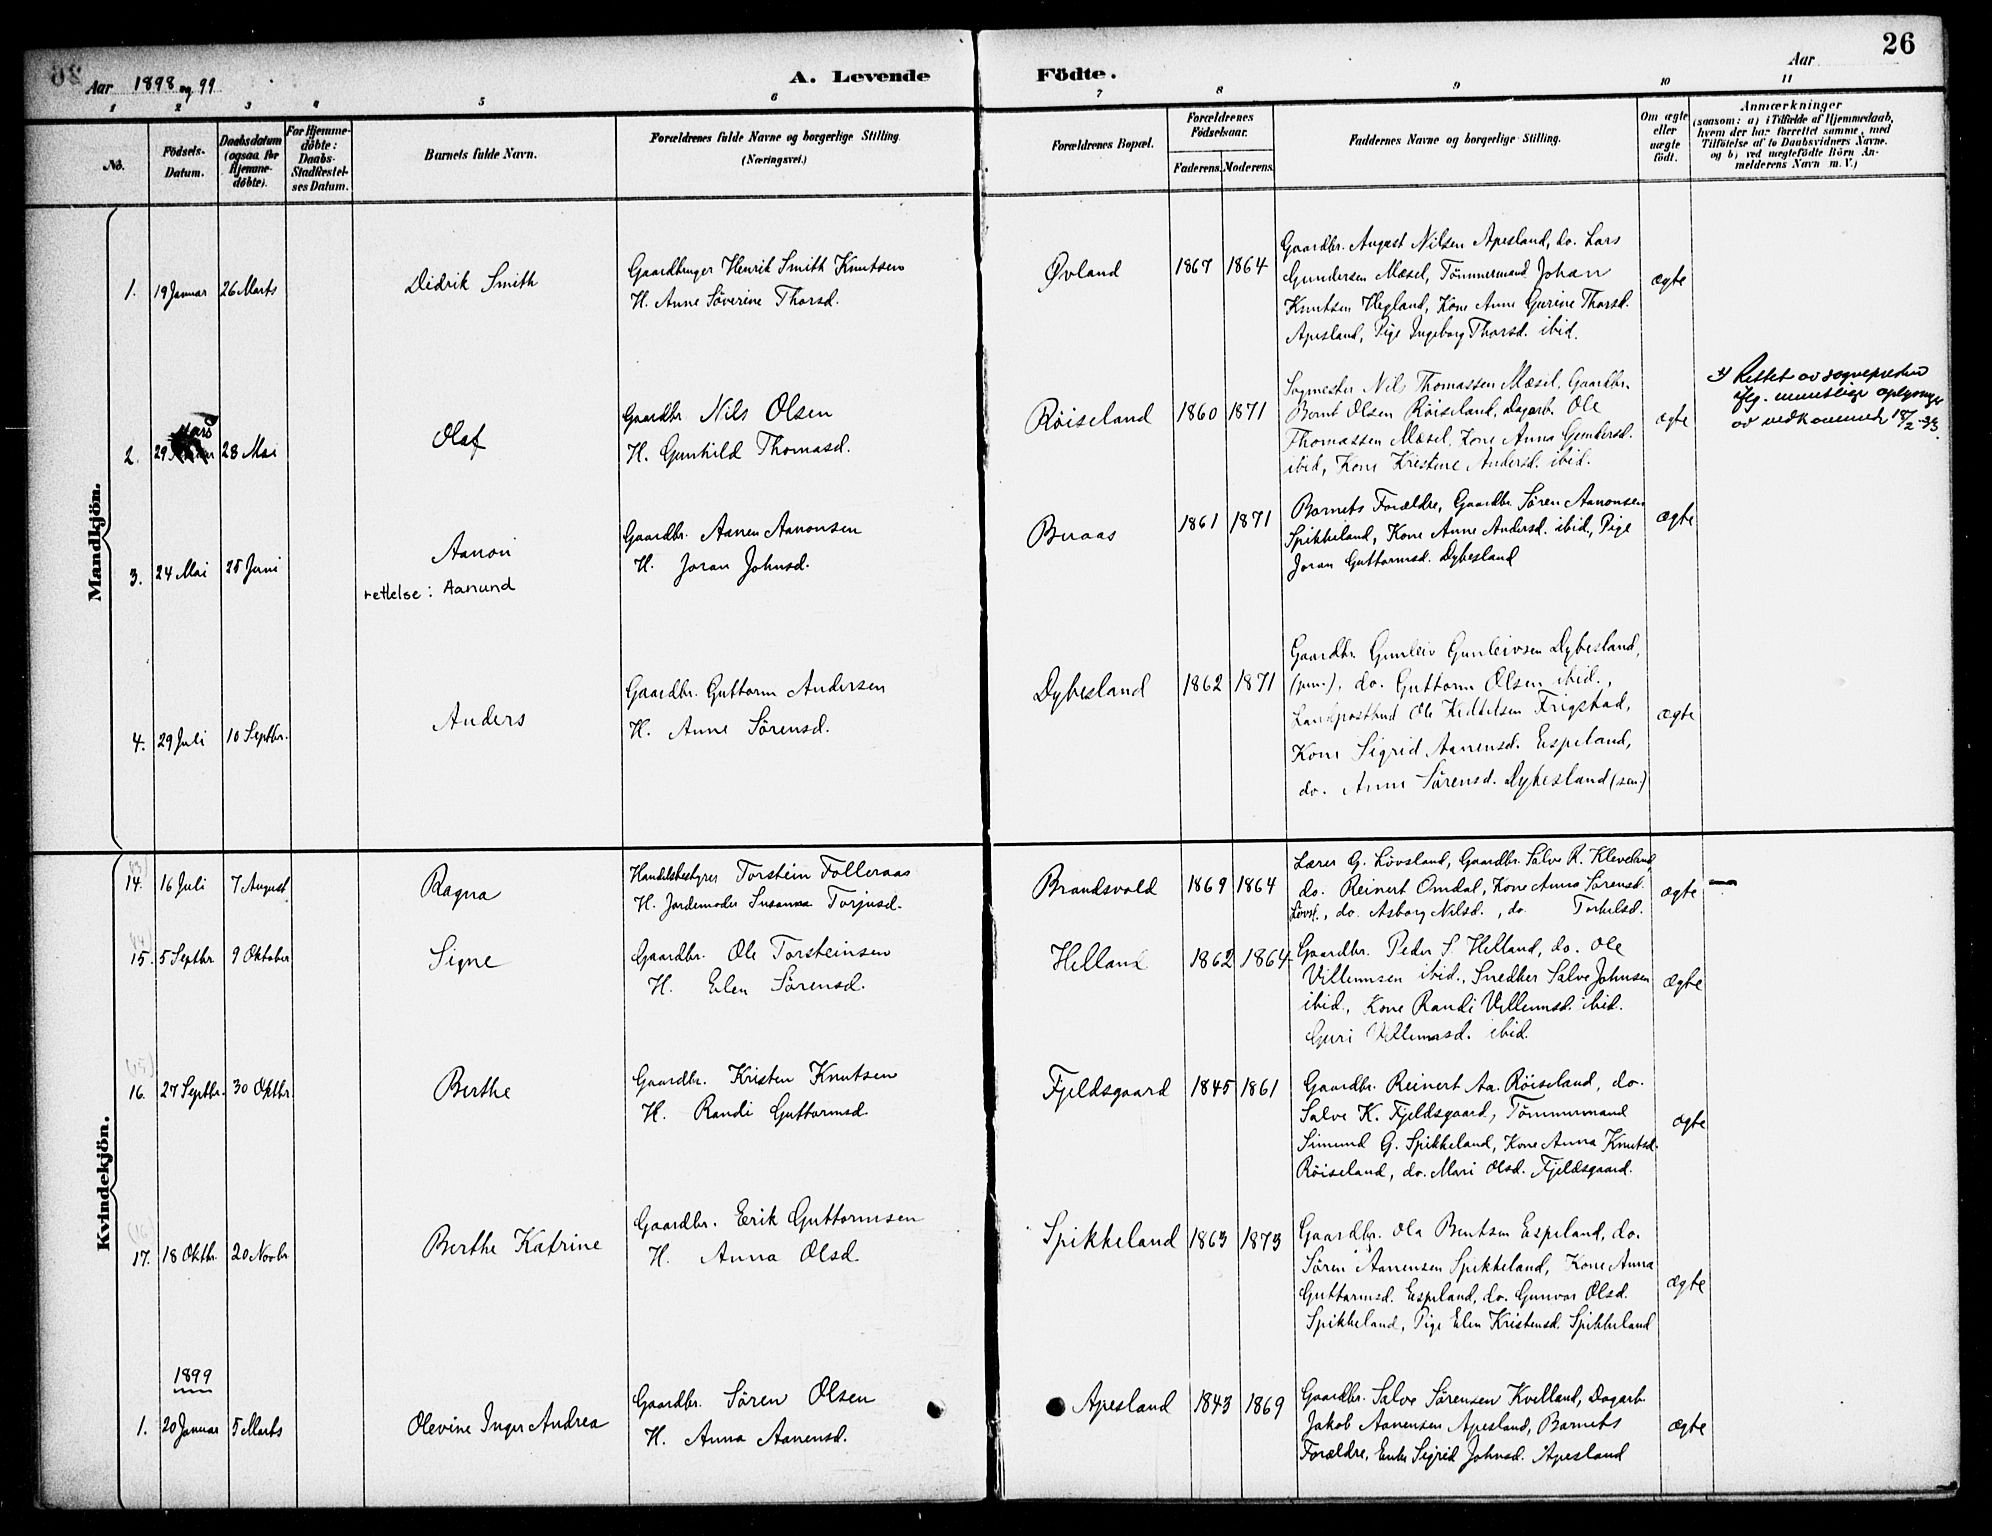 26
Aar 1898 og 99
A. Levende Födte.
Aar
1 2 3 4 5 6 7 8 9 10 11
No.
Födsels-
Datum.
Daabsdatum
(ogsaa for
Hjemme-
döbte).
For Hjemme-
döbte:
Daabs-
Stadfæstel-
ses Datum.
Barnets fulde Navn.
Forældrenes fulde Navne og borgerlige Stilling.
(Næringsvei.)
Forældrenes Bopæl.
Forældrenes
Födselsaar.
Faderens. Moderens.
Faddernes Navne og borgerlige Stilling.
Om ægte
eller
uægte
født.
Anmærkninger
(saasom: a) i Tilfælde af Hjemmedaab,
hvem der har forrettet samme, med
Tilföielse af to Daabsvidners Navne.
og b) ved uægtefödte Börn An-
melderens Navn m. V.)
Mandkjön.
1. 19 Januar 26 Marts
Didrik Smith
Gaardbruger Henrik Smith Knutsen
H. Anne Söverine Thorsd.
Øvland 1867 1864
Gaardbr. August Nilsen Apesland, do. Lars
Gundersen Mæsel, Tömmermand Johan
Knutsen Hegland, Kone Anne Gurine Thorsd.
Apesland, Pige Ingeborg Thorsd. ibid.
ægte
2. 29 Mars 28 Mai
Olaf
Gaardbr. Nils Olsen
H. Gunhild Thomasd.
Röiseland 1860 1871
Sogmester Nils Thomassen Mæsel, Gaardbr.
Bernt Olsen Röiseland, Dagarb. Ole
Thomassen Mæsel, Kone Anna Gundersd.
ibid, Kone Kristine Andersd. ibid.
ægte
Rettet av sognepresten
iflg. muntlige oplysnger
av vedkommende 18/2-33.
3. 24 Mai 25 Juni
Aanon
rettelse: Aanund
Gaardbr. Aanen Aanonsen
H. Joran Johnsd.
Buaas 1861 1871
Barnets Forældre, Gaardbr. Sören Aanonsen
Spikkeland, Kone Anne Andersd. ibid, Pige
Joran Guttormsd. Dybesland
ægte
4. 29 Juli 10 Septbr.
Anders
Gaardbr. Guttorm Andersen
H. Anne Sörensd.
Dybesland 1862 1871
Gaardbr. Gunleiv Gunleivsen Dybesland,
(jun.), do. Guttorm Olsen ibid.,
Landpostbud Ole Kittelsen Frigstad,
Kone Sigrid Aanensd. Espeland,
do. Anne Sörensd. Dybesland (sen.)
ægte
Kvindekjön.
(13)
14. 16 Juli 7 August
Ragna
Handelsbestyrer Torstein Folleraas
H. Jordemoder Susanna Torjusd.
Brandsvold 1869 1864
Lærer G. Lövsland, Gaardbr. Salve R. Kleveland
do. Reinert Omdal, Kone Anna Sörensd.
Lövsl., do. Asborg Nilsd., do. Torkelsd.
ægte —
(14)
15. 5 Septbr 9 Oktober
Signe
Gaardbr. Ole Torsteinsen
H. Elen Sörensd.
Helland 1862 1864
Gaardbr. Peder S. Helland, do. Ole
Villumsen ibid., Snedker Salve Johnsen
ibid., Kone Randi Villumsd. ibid.
Guri Villumsd. ibid.
ægte
(15)
16. 27 Septbr. 30 Oktbr.
Berthe
Gaardbr. Kristen Knutsen
H. Randi Guttormsd.
Fjeldsgaard 1845 1861
Gaardbr. Reinert Aa. Röiseland, do.
Salve K. Fjeldsgaard, Tömmermand
Simund G. Spikkeland, Kone Anna Knutsd.
Röiseland, do. Mari Olsd. Fjeldsgaard.
ægte
(16)
17. 18 Oktbr. 20 Novbr
Berthe Katrine
Gaardbr. Erik Guttormsen
H. Anna Olsd.
Spikkeland 1863 1873
Gaardbr. Ola Bentsen Espeland, do.
Sören Aanensen Spikkeland, Kone Anna
Guttormsd. Espeland, do. Gunvor Olsd.
Spikkeland, Pige Elen Kristensd. Spikkeland
ægte
1899
1. 20 Januar 5 Marts
Olevine Inger Andrea
Gaardbr. Sören Olsen
H. Anna Aanensd.
Apesland 1843 1869
Gaardbr. Salve Sörensen Kvelland, Dagarb.
Jakob Aanensen Apesland, Barnets
Forældre, Enke Sigrid Johnsd. Apesland
ægte